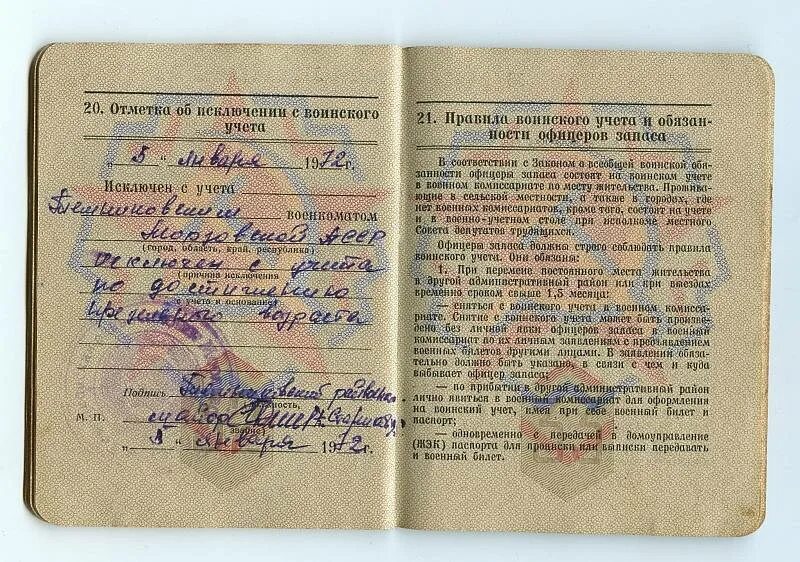 20. Отметка об исключении с воинского
учета
„ 5 " января 1972г.
Исключен с учета
Темниковским военкоматом
Мордовской АССР
(город, область, край, республика)
исключен с учета
(причина исключения
по достижению
с учета и основание)
предельного возраста
Подпись Темниковский
майор
звание)
М. П. „ 5 " января 1972г.
21. Правила воинского учета и обязан-
ности офицеров запаса
В соответствии с Законом о всеобщей воинской обя-
занности офицеры запаса состоят на воинском учете
в военном комиссариате по месту жительства. Прожива-
ющие в сельской местности, а также в городах, где
нет военных комиссариатов, кроме того, состоят на учете
и в военно-учетном столе при исполкоме местного
Совета депутатов трудящихся.
Офицеры запаса должны строго соблюдать правила
воинского учета. Они обязаны:
1. При перемене постоянного места жительства
в другой административный район или при выездах
временно сроком свыше 1,5 месяца:
— сняться с воинского учета в военном комисса-
риате. Снятие с воинского учета может быть произве-
дено без личной явки офицеров запаса в военный
комиссариат по их личным заявлениям с предъявлением
военных билетов другими лицами. В заявлении обяза-
тельно должно быть указано, в связи с чем и куда
выбывает офицер запаса;
— по прибытии в другой административный район
лично явиться в военный комиссариат для оформления
на воинский учет, имея при себе военный билет и
паспорт;
— одновременно с передачей в домоуправление
(ЖЭК) паспорта для прописки или выписки передавать
и военный билет.